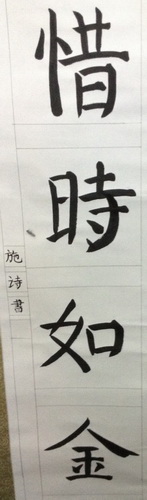 惜時如金
施诗書